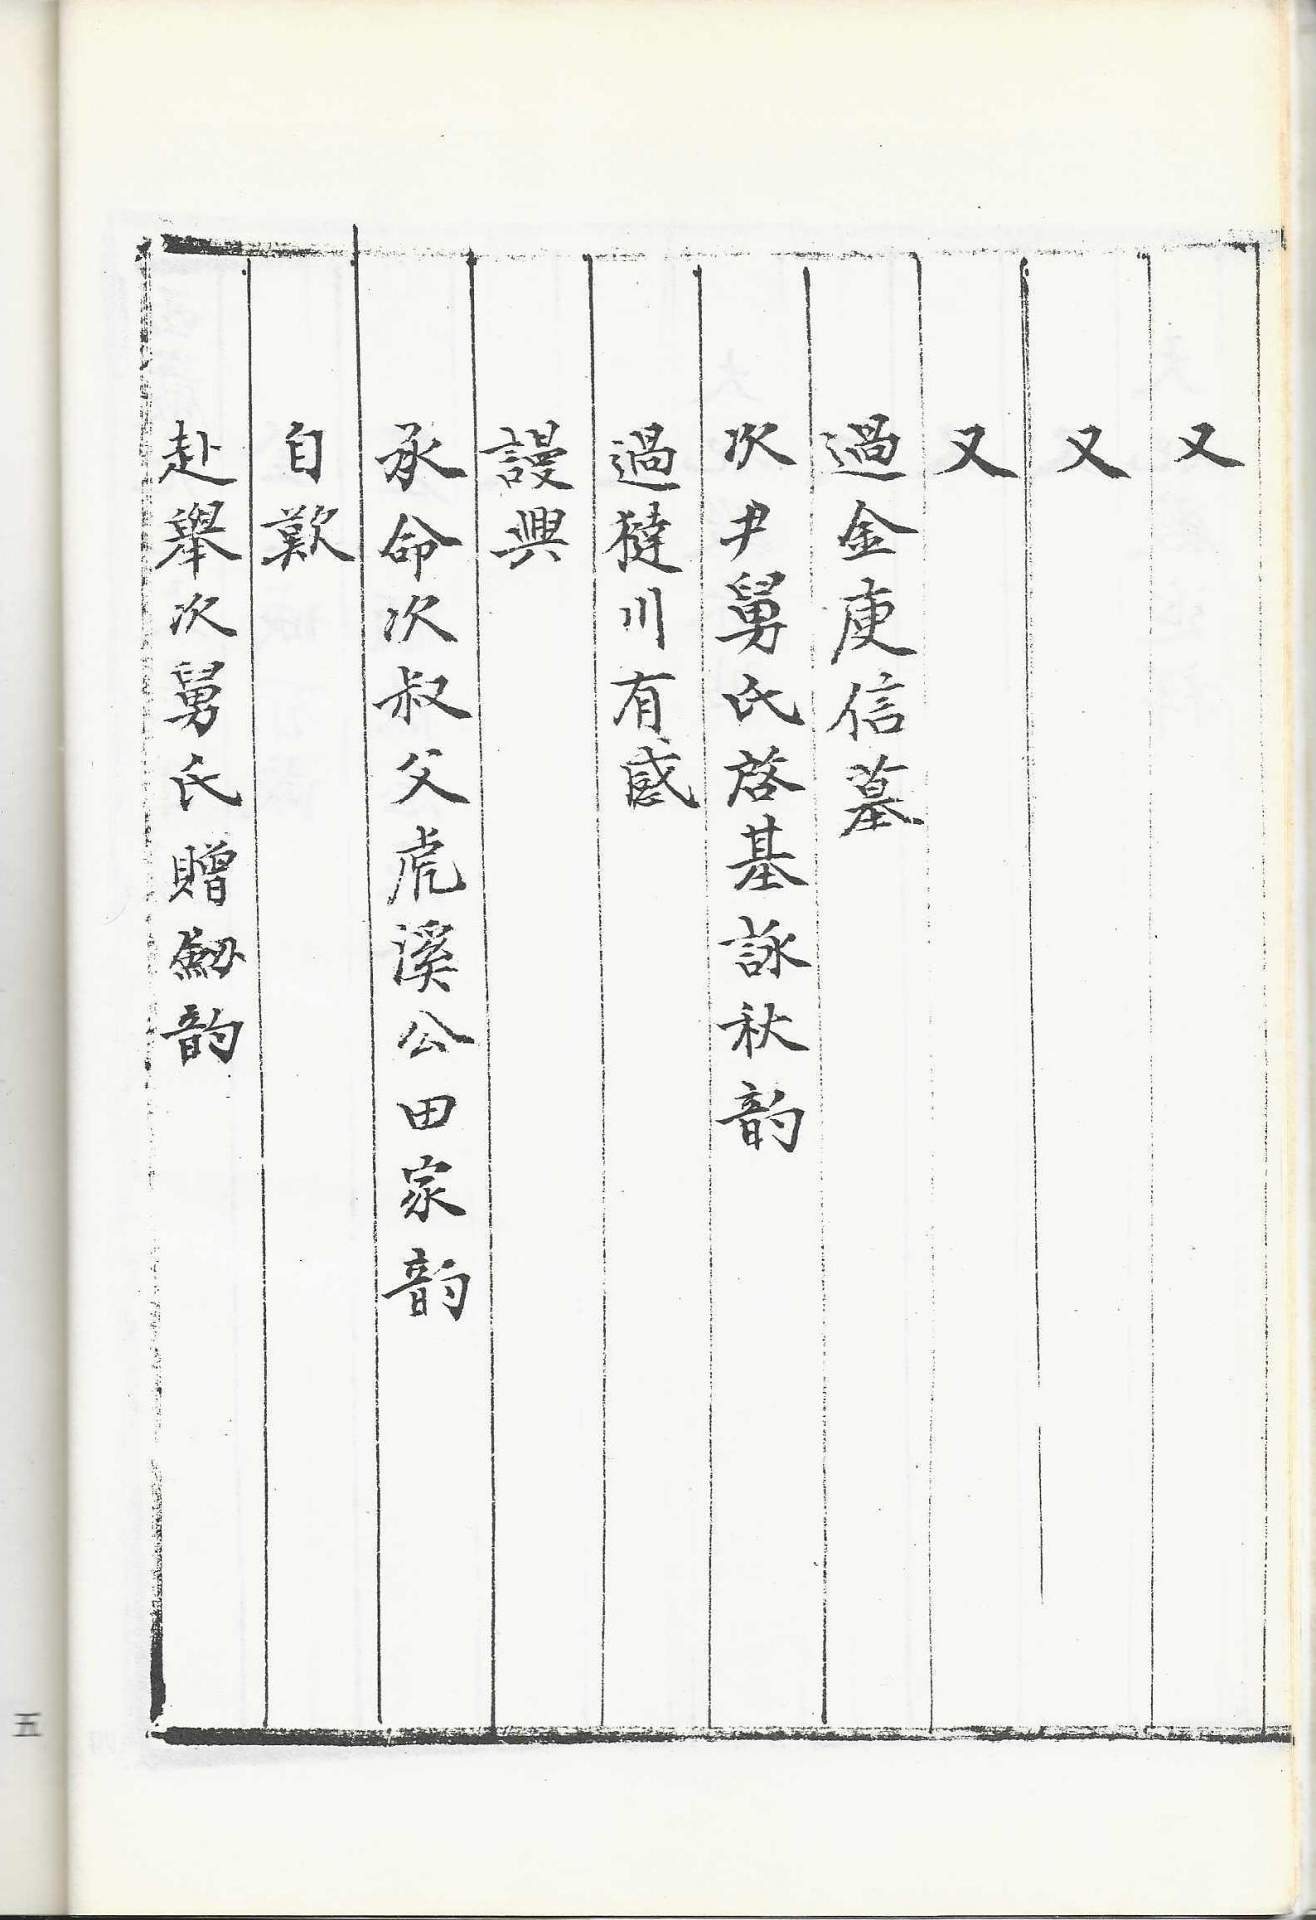 又
又
又
過金庾信墓
次尹舅氏啓基詠秋韵
過㺚川有感
謾興
承命次叔父虎溪公田家韵
自歎
赴舉次舅氏贈劒韵
五